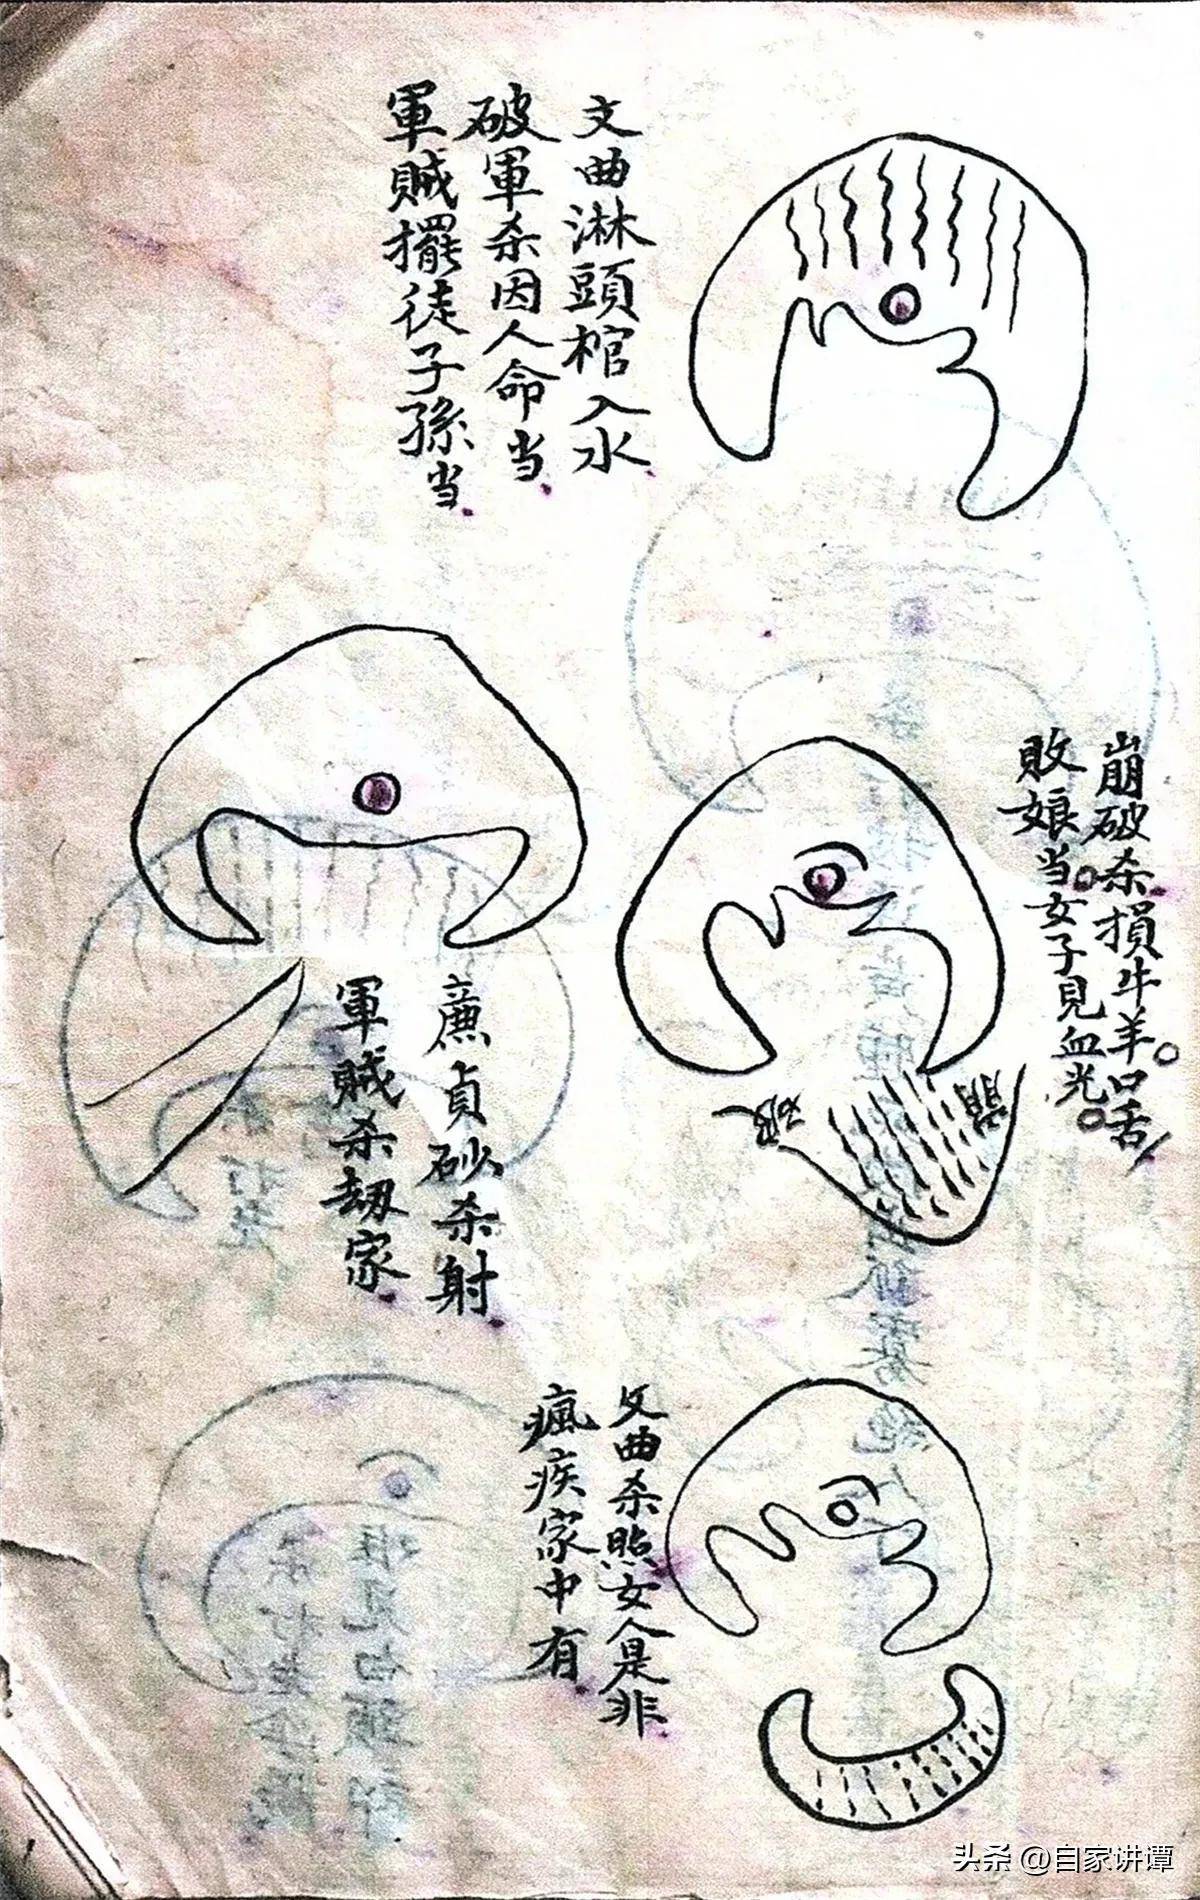 文曲淋頭棺入水
破軍杀因人命当
軍賊擺徒子孫当
崩破杀損牛羊口舌
敗娘当女子見血光
破
崩
廉貞砂杀射
軍賊杀劫家
文曲杀照女人是非
瘋疾家中有
头杀 @自家讲谭